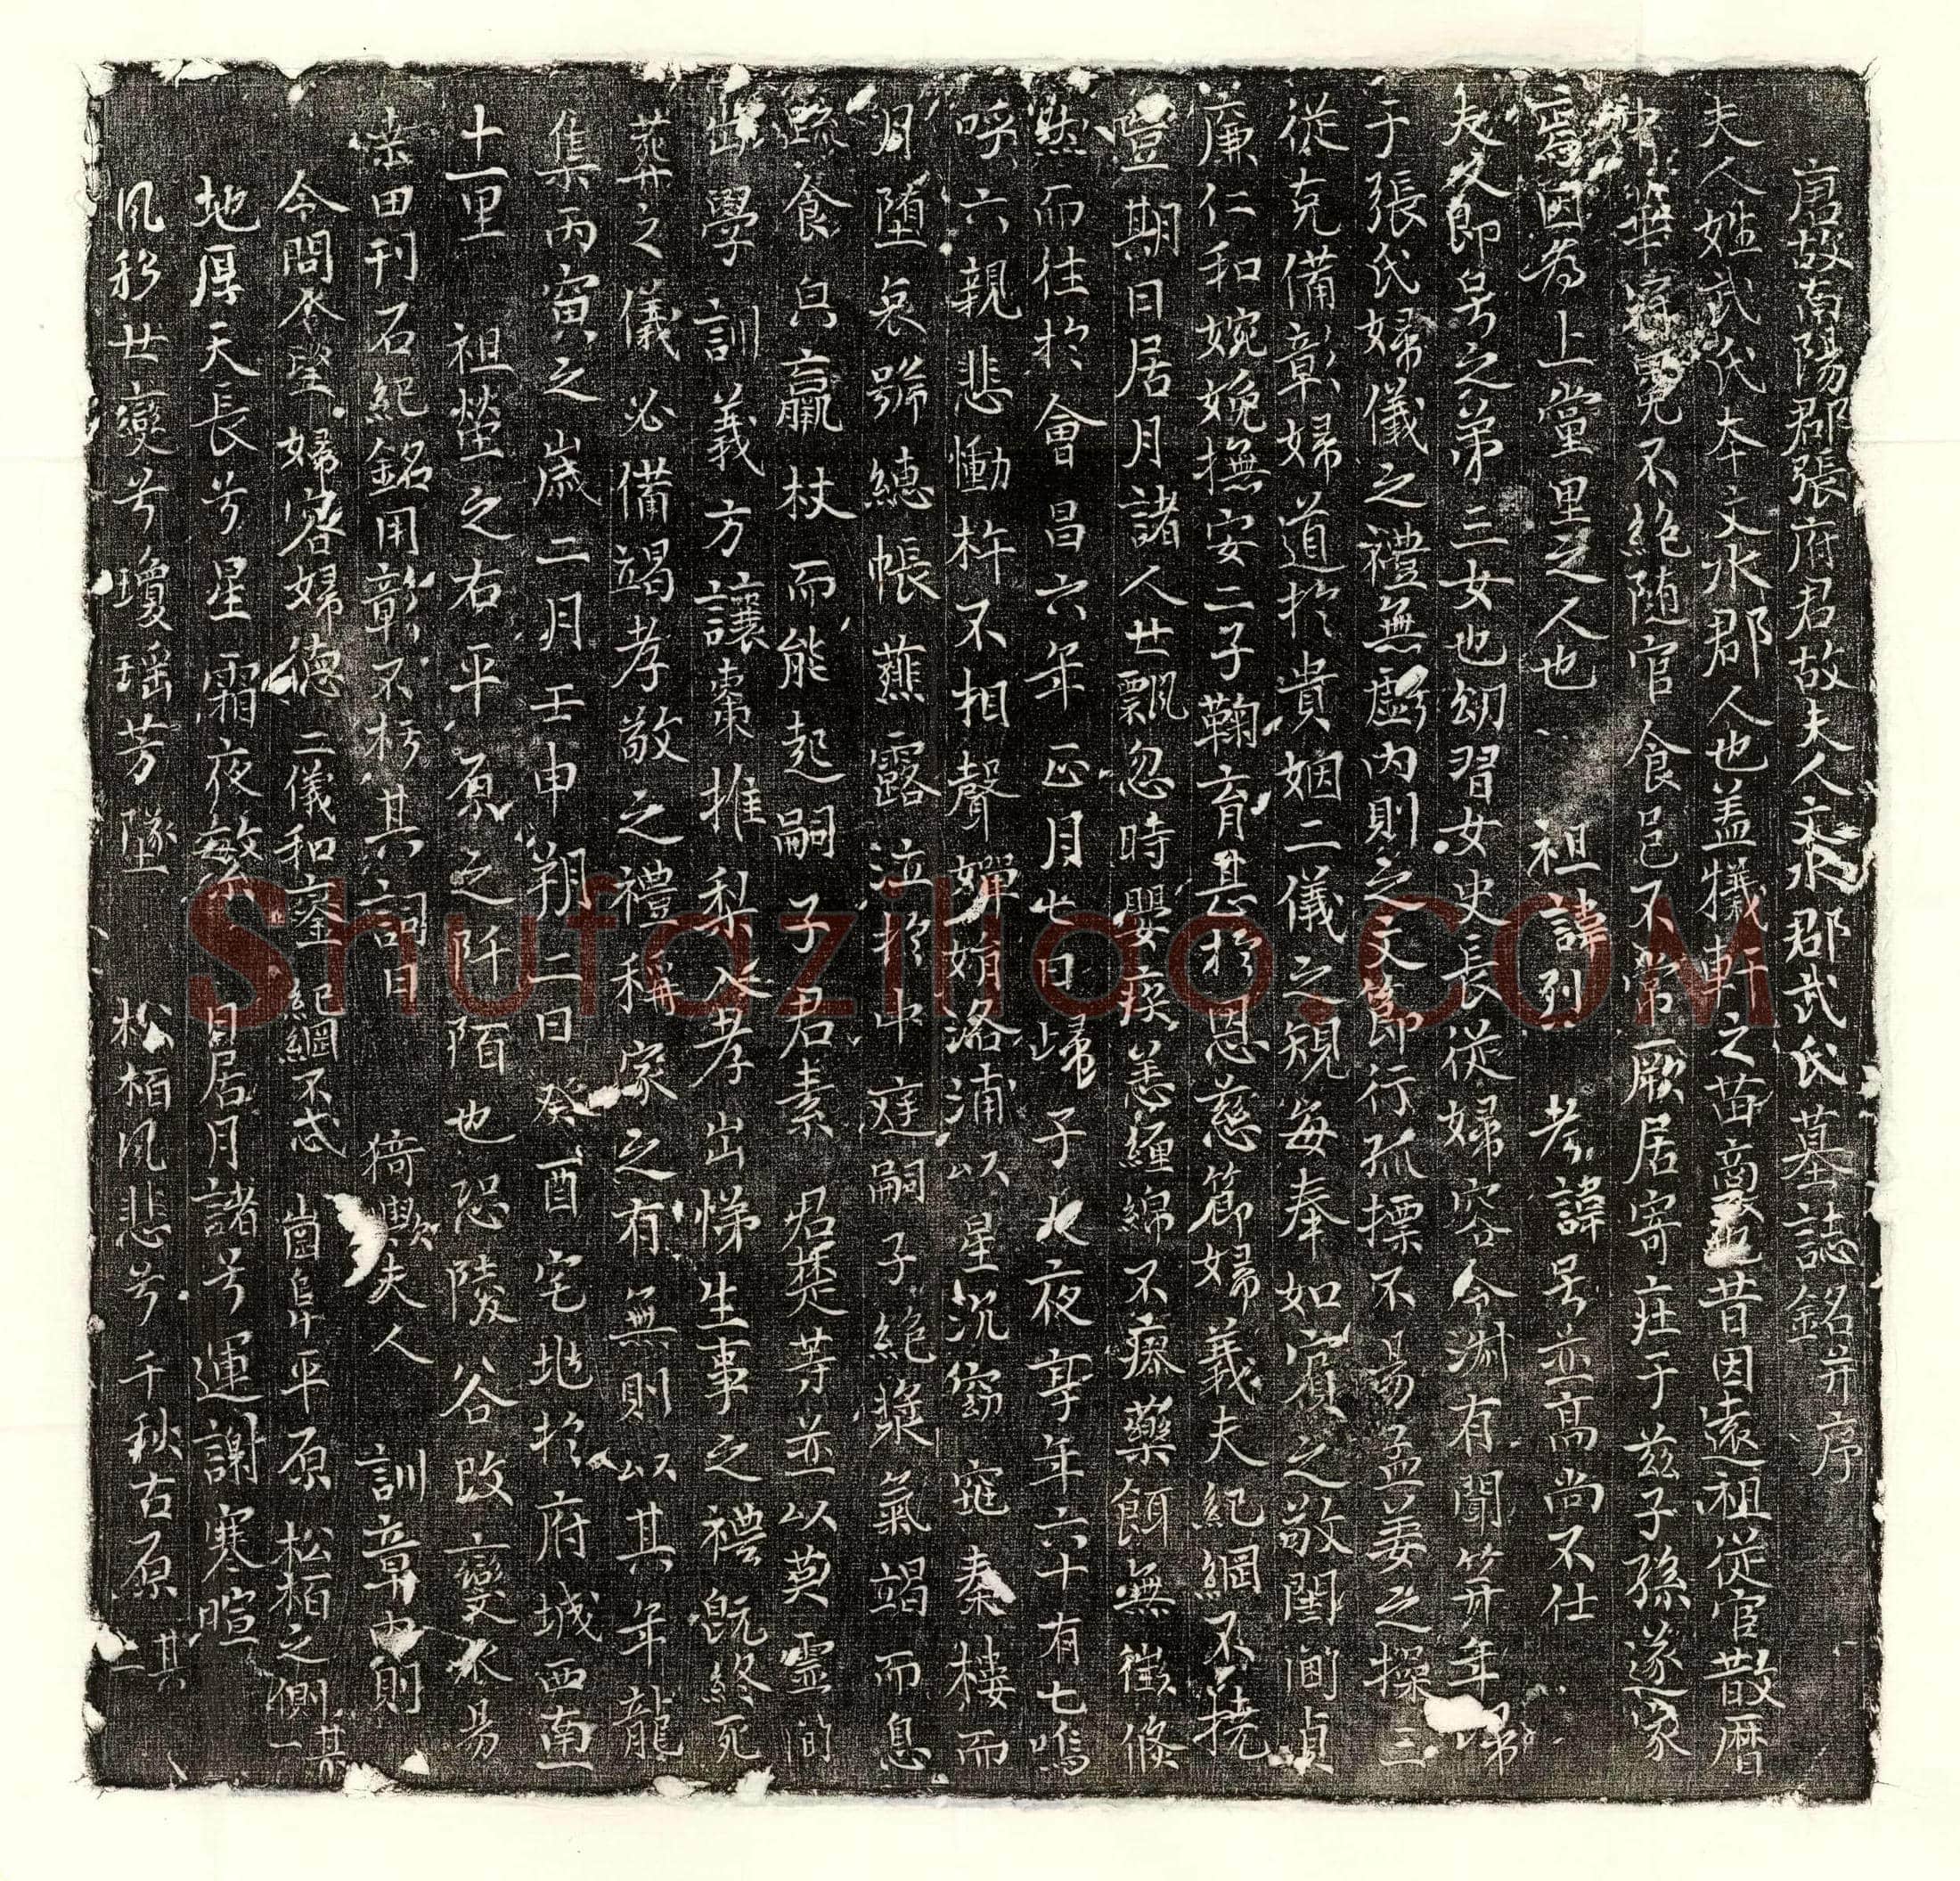 唐故南陽郡張府君故夫人文水郡武氏墓誌銘并序
夫人姓武氏本文水郡人也盖犧軒之苗裔也昔因遠祖從官散曆
中華簪冕不絕随官食邑不常厥居寄庄于兹子孫遂家
焉因為上黨里之人也 祖諱列 考諱旻並高尚不仕
夫人即旻之弟三女也幼習女史長從婦容令淑有聞笄年歸
于張氏婦儀之禮無虧内則之文節行孤摽不易孟姜之操三
從克備彰婦道於貴姻二儀之規每奉如賓之敬閨閫貞
廉仁和婉娩撫安二子鞠育甚於恩慈節婦義夫紀綱不撓
豈期日居月諸人世飄忽時嬰疾恙纏綿不瘳藥餌無徵倐
然而往於會昌六年正月七日歸于大夜享年六十有七嗚
呼六親悲慟杵不相聲嬋娟洛浦以星沉窈窕秦樓而
月墮哀號繐帳薤露泣於中庭嗣子絕漿氣竭而息
蔬食臼羸杖而能起嗣子君素 君爽等並以奠靈間
出學訓義方讓棗推梨入孝出悌生事之禮既終死
葬之儀必備竭孝敬之禮稱家之有無則以其年龍
集丙寅之歲二月壬申朔二日癸酉宅地於府城西南
十里 祖塋之右平原之阡陌也恐陵谷改變不易
桒田刊石紀銘用彰不朽其詞曰 猗歟夫人 訓章内則
令問令望 婦容婦德 二儀和鑾 紀綱不忒 崗阜平原 松栢之側 其一
地厚天長兮星霜夜繁 日居月諸兮運謝寒暄
風移世變兮瓊瑶芳墜 松栢風悲兮千秋古原 其二
Shufaziliao.COM